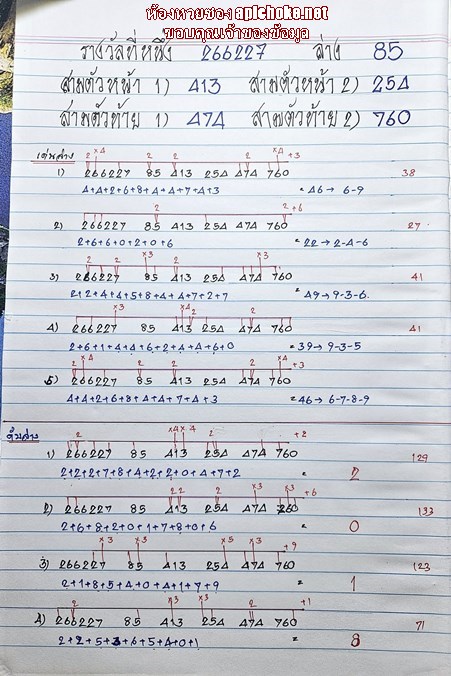 ห้องหวยซอง apichoke.net
ขอบคุณเจ้าของข้อมูล
รางวัลที่หนึ่ง 266227 ล่าง 85
สามตัวหน้า 1) 413 สามตัวหน้า 2) 254
สามตัวท้าย 1) 474 สามตัวท้าย 2) 760
เด่นล่าง
2 x4 2 2 2 x4 +3
1) 266227 85 413 254 474 760 38
4+4+2+6+8+4+4+7+4+3 = 46 → 6-9
2 2 +6
2) 266227 85 413 254 474 760 27
2+6+6+0+2+0+6 = 22 → 2-4-6
2 2 x3 2 x3
3) 266227 85 413 254 474 760 41
2+2+4+4+5+8+4+4+7+2+7 = 49 → 9-3-6
x3 2
4) 266227 85 413 254 474 760 41
2+6+1+4+4+6+2+4+4+6+0 = 39 → 9-3-5
2 x4 2 2 x4 +3
5) 266227 85 413 254 474 760
4+4+2+6+8+4+4+7+4+3 = 46 → 6-7-8-9
2 x4 x4 2 +2
1) 266227 85 413 254 474 760 129
2+2+2+7+8+4+2+2+0+4+7+2 = 2
2 2 2 x3 x3 +6
2) 266227 85 413 254 474 760 133
2+6+8+2+0+1+7+8+0+6 = 0
x3 x3 x5 x3 +9
3) 266227 85 413 254 474 760 123
2+1+8+5+4+0+4+1+7+9 = 1
2 x3 x3 2 +1
4) 266227 85 413 254 474 760 71
2+2+5+3+6+5+4+0+1 = 8